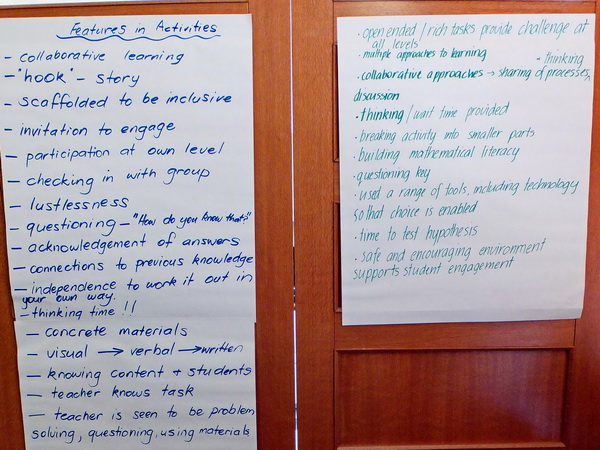 Features in Activities
- collaborative learning
- "hook" - story
- scaffolded to be inclusive
- invitation to engage
- participation at own level
- checking in with group
- lustlessness
- questioning - "How do you know that?"
- acknowledgement of answers
- connections to previous knowledge
- independence to work it out in
your own way.
- thinking time !!
- concrete materials
- visual → verbal → written
- knowing content + students
- teacher knows task
- teacher is seen to be problem
solving, questioning, using materials
· open ended / rich tasks provide challenge at
all levels
· multiple approaches to learning
- thinking
· collaborative approaches → sharing of processes,
discussion
· thinking / wait time provided
· breaking activity into smaller parts
· building mathematical literacy
· questioning key
· used a range of tools, including technology
so that choice is enabled
· time to test hypothesis
· safe and encouraging environment
supports student engagement